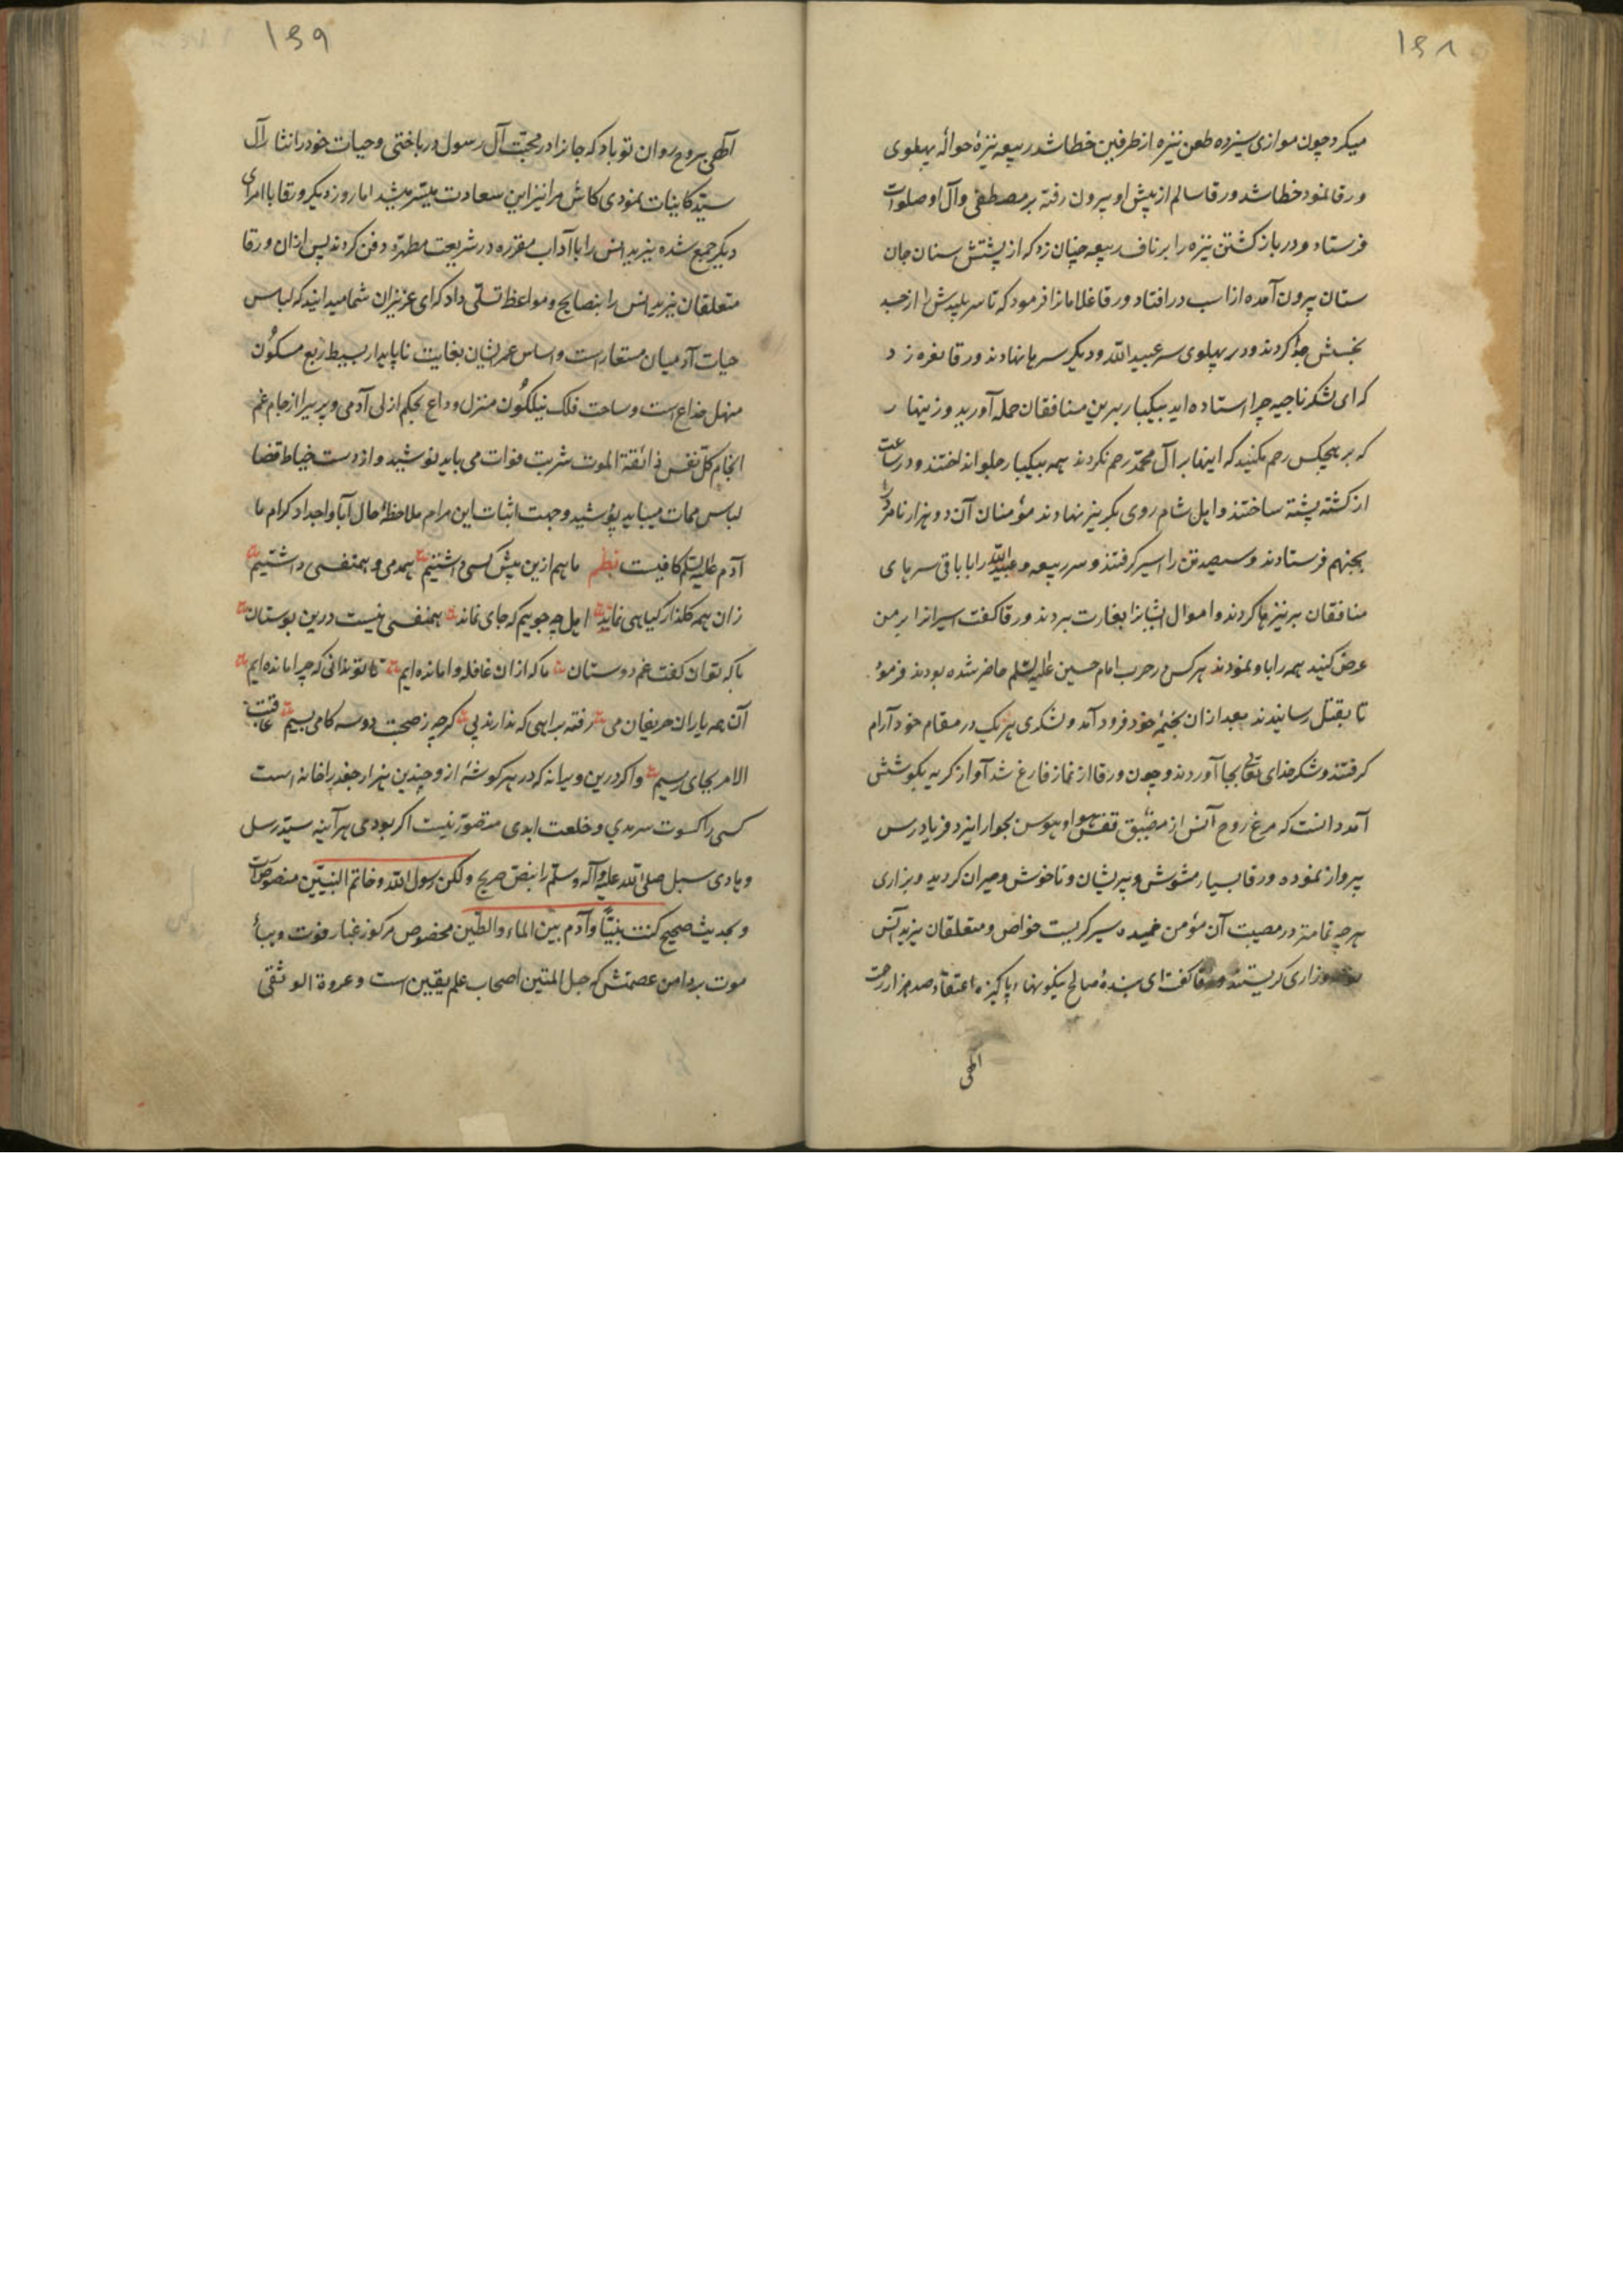 ۱۶۸
میکرد چون موازی سیزده طعن نیزه از طرفین خطا شد ربیعه نیزهٔ حوالهٔ پهلوی
ورقا نمود خطا شد ورقا سالم از پیش او بیرون رفته بر مصطفی وآل او صلوات
فرستاد و در باز کشتن نیزه را بر ناف ربیعه چنان زد که از پشتش سنان جان
ستان بیرون آمده از اسب در افتاد ورقا غلامانرا فرمود که تا سر پلیدش را از جسد
نجسش جدا کردند و در پهلوی سر عبیدالله و دیگر سرها نهادند ورقا نعره زد
که ای لشکر ناجیه چرا استاده اید بیکبار برین منافقان حمله آورید و زینهار
که بر هیچکس رحم مکنید که اینها بر آل محمد رحم نکردند همه بیکبار جلو انداختند و در ساعت
از کشته پشته ساختند و اهل شام روی بگریز نهادند مؤمنان آن دو هزار نامرد را
بجهنم فرستادند و سیصد تن را اسیر کرفتند و سر ربیعه و عبیدالله را با باقی سرهای
منافقان بر نیزها کردند و اموال ایشانرا بغارت بردند ورقا کفت اسیرانرا بر من
عرض کنید همه را باو نمودند هر کس در حرب امام حسین علیه السلم حاضر شده بودند فرمود
تا بقتل رسانیدند بعد ازان بخیمهٔ خود فرود آمد و لشکری هر یک در مقام خود آرام
کرفتند و شکر خدای تعالی بجا آوردند و چون ورقا از نماز فارغ شد آواز کریه بکوشش
آمد دانست که مرغ روح آنس از مضیق قفس هوا و هوس بجوار ایزد فریاد رس
پرواز نموده ورقا بسیار مشوش و پریشان و ناخوش و حیران کردید و بزاری
هر چه تمامتر در مصیبت آن مؤمن خمیده سیر کریست خواص و متعلقان یزید انس
وزاری کریستند ورقا کفت ای بندهٔ صالح نیکو نهاد پاکیزه اعتقاد صد هزار رحمت
الهی
۱۶۹
الهی بروح روان تو باد که جانرا در محبت آل رسول در باختی و حیات خود را نثار آل
سید کاینات نمودی کاش مرا نیز این سعادت میسر میشد اما روز دیگر ورقا با امرای
دیگر جمع شده یزید انس را با آداب مقرره در شریعت مطهره دفن کردند پس ازان ورقا
متعلقان یزید انس را بنصایح و مواعظ تسلی داد که ای عزیزان شما میدانید که لباس
حیات آدمیان مستعار است و اساس عمر ایشان بغایت ناپایدار بسیط ربع مسکون
منهل خداع است و ساحت فلک نیلکون منزل وداع بحکم ازلی آدمی و پری را از جام غم
انجام کل نفس ذائقة الموت شربت فوات می باید نوشید و از دست خیاط قضا
لباس ممات میباید پوشید و جهت اثبات این مرام ملاحظهٔ حال آبا و اجداد کرام ما
آدم علیه السلم کافیست نظم ما هم ازین پیش کسی داشتیم همدمی و همنفسی داشتیم
زان همه کلذار کیاهی نماند اهل چه جوییم که جای نماند همنفسی نیست درین بوستان
با که توان کفت غم دوستان ما که ازان غافله وامانده ایم تا تو ندانی که چرا مانده ایم
آن همه یاران حریفان می رفته براهی که ندارند پی کرچه ز صحبت دو سه کامی پسیم عاقبت
الامر بجای رسیم واکر درین ویرانه که در هر کوشهٔ ازو چندین هزار جغد را خانه است
کسی را کسوت سرمدی و خلعت ابدی متصور نیست اکر بودی هر آینه سید رسل
و هادی سبل صلی الله علیه وآله وسلم را بنص صریح ولکن رسول الله وخاتم النبیین منصوص است
و بحدیث صحیح کنت نبیًّا وآدم بین الماء والطین مخصوص مرکوز غبار فوت و هباء
موت بر دامن عصمتش که حبل المتین اصحاب علم یقین است و عروة الوثقی